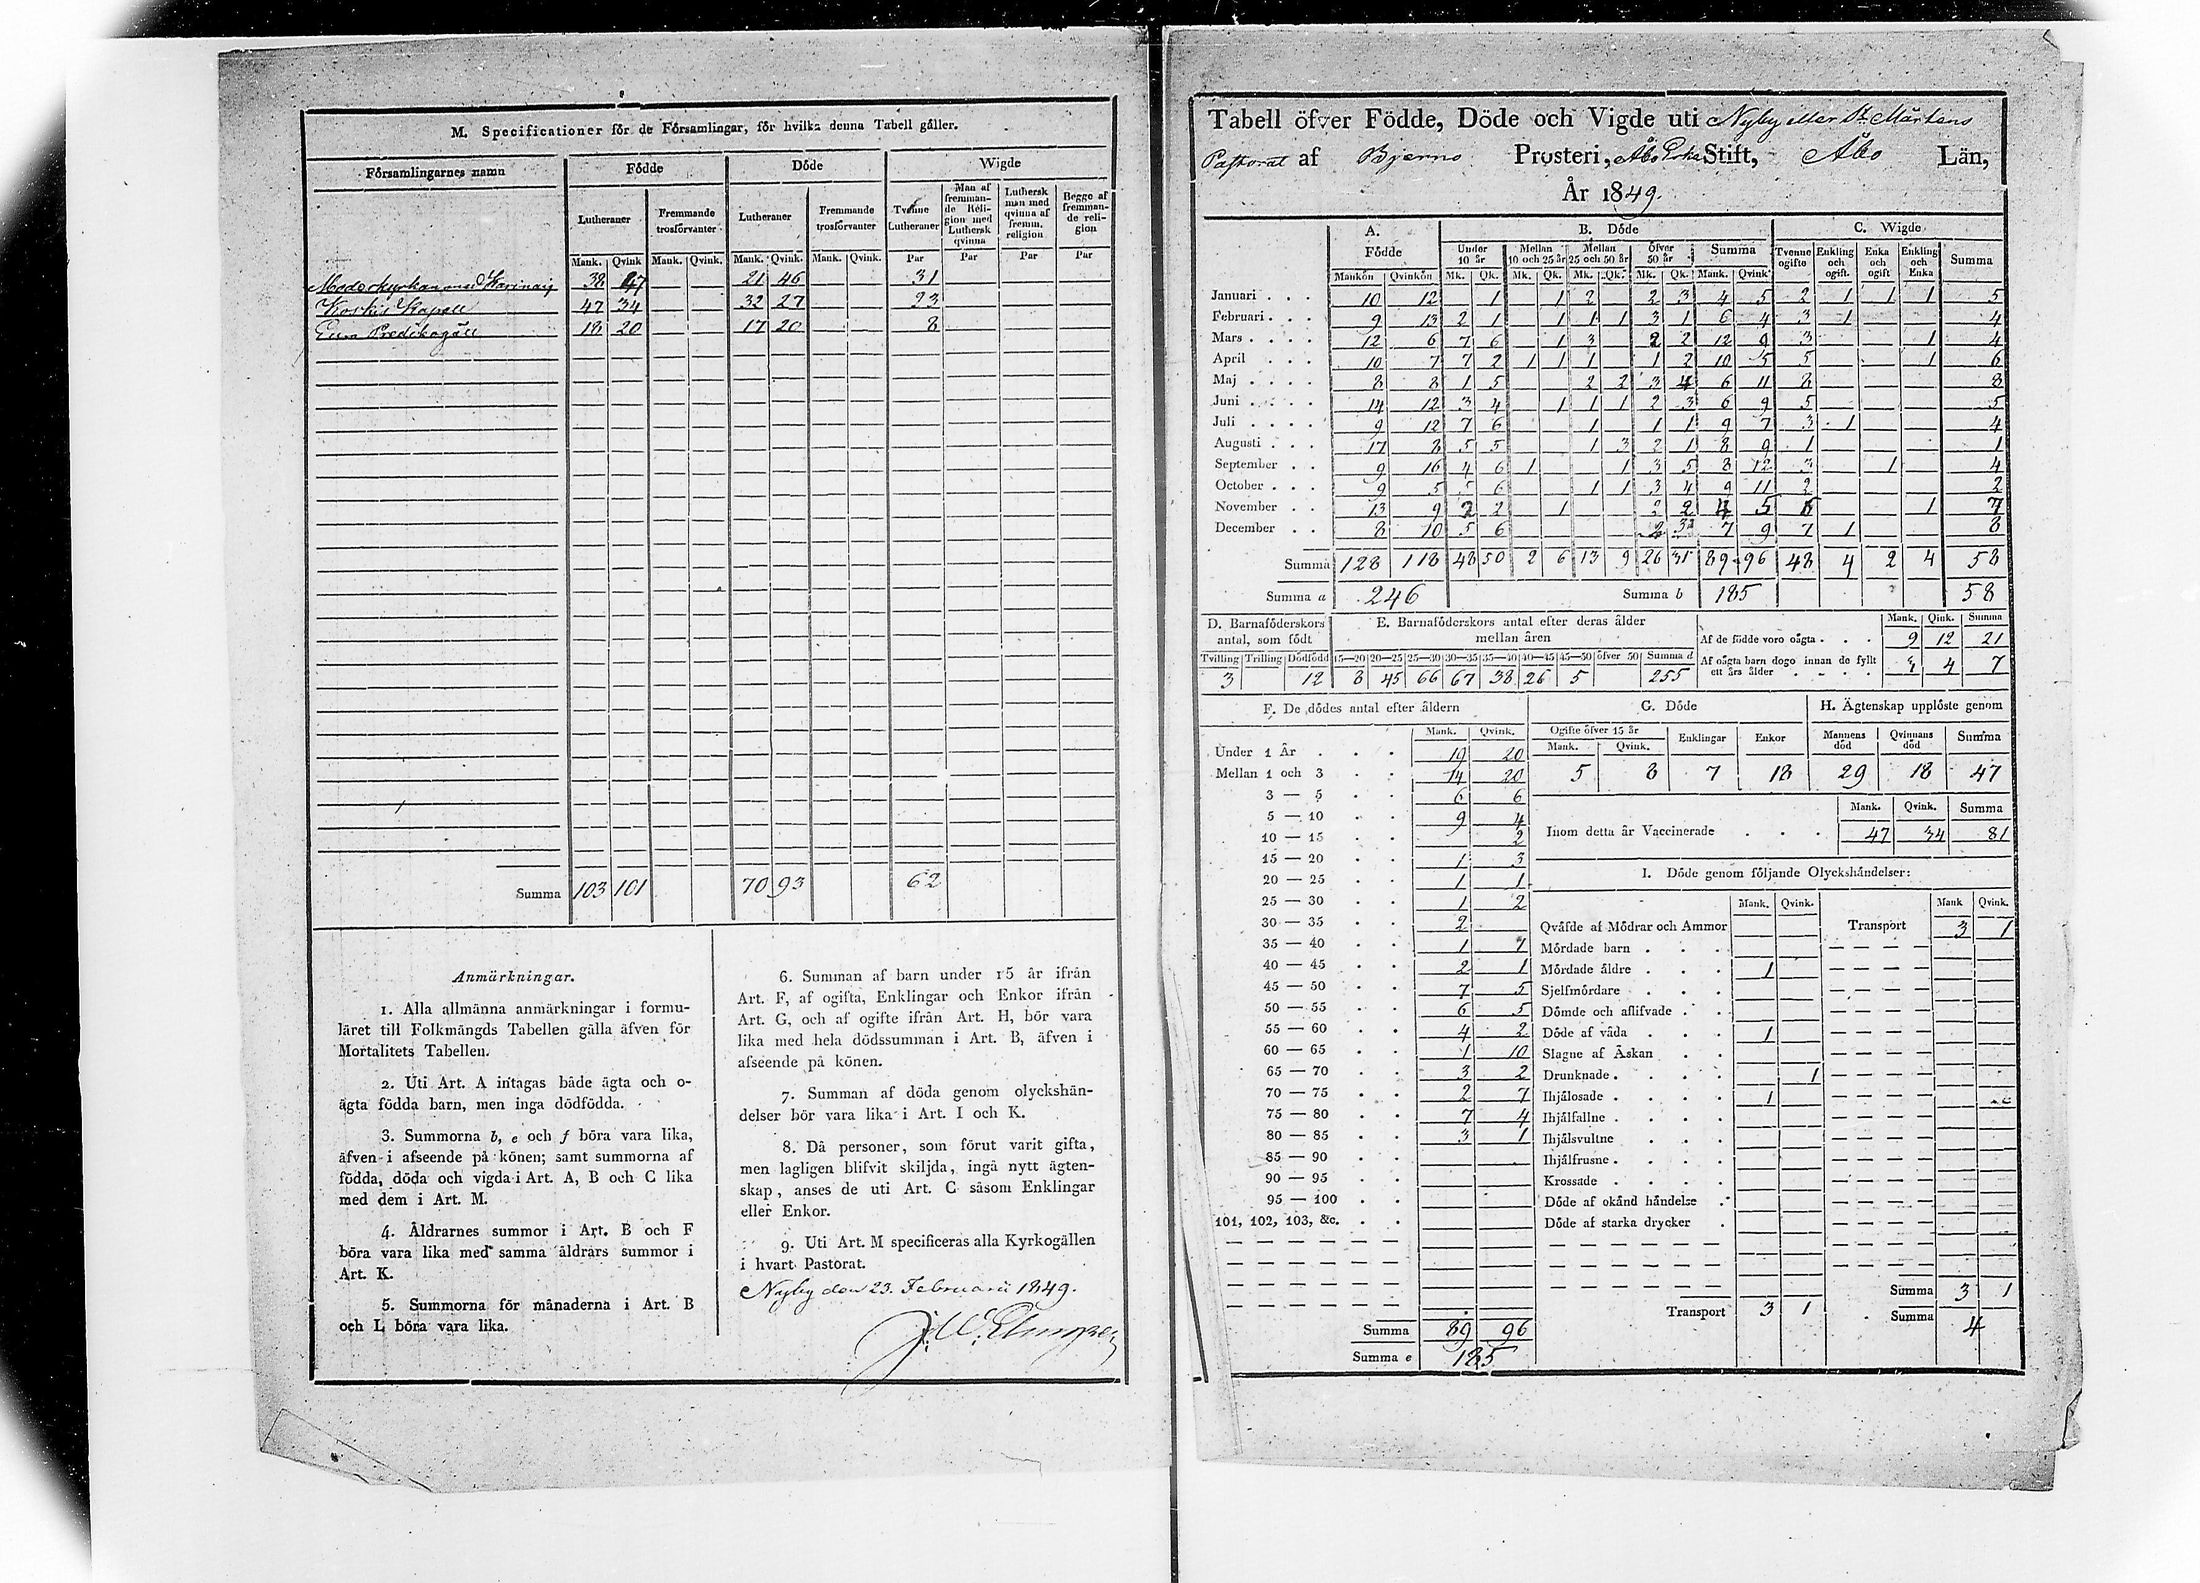 M. Specificationer för de Församlingar, för hvilka denna Tabell gäller.
Församlingarnes namn | Födde | Döde | Wigde
Lutheraner | Fremmande trosförvanter | Lutheraner | Fremmande trosförvanter | Tvenne Lutheraner | Man af fremmande Religion med Luthersk qvinna | Luthersk man med qvinna af fremm. religion | Begge af fremmande religion
Mank. Qvink Mank. Qvink. Mank. Qvink. Mank. Qvink. Par Par Par Par
Moderkyrkan med Karinais 38 47 21 46 31
Koskis Kapell 47 34 32 27 23
Eura Predikogäll 18 20 17 20 8
Summa 103 101 70 93 62
Anmärkningar.
1. Alla allmänna anmärkningar i formu-
läret till Folkmängds Tabellen gälla äfven för
Mortalitets Tabellen.
2. Uti Art. A intagas både ägta och o-
ägta födda barn, men inga dödfödda.
3. Summorna b, e och f böra vara lika,
äfven i afseende på könen; samt summorna af
födda, döda och vigda i Art. A, B och C lika
med dem i Art. M.
4. Åldrarnes summor i Art. B och F
böra vara lika med samma åldrars summor i
Art. K.
5. Summorna för månaderna i Art. B
och L böra vara lika.
6. Summan af barn under 15 år ifrån
Art. F, af ogifta, Enklingar och Enkor ifrån
Art. G, och af ogifte ifrån Art. H, bör vara
lika med hela dödssumman i Art. B, äfven i
afseende på könen.
7. Summan af döda genom olyckshän-
delser bör vara lika i Art. I och K.
8. Då personer, som förut varit gifta,
men lagligen blifvit skiljda, ingå nytt ägten-
skap, anses de uti Art. C såsom Enklingar
eller Enkor.
9. Uti Art. M specificeras alla Kyrkogällen
i hvart Pastorat.
Nyby den 23. Februarii 1849.
Tabell öfver Födde, Döde och Vigde uti Nyby eller St. Mårtens
Pastorat af Bjerno Prosteri, Åbo Erke Stift, Åbo Län,
År 1849.
A. Födde | B. Döde | C. Wigde
Under 10 år | Mellan 10 och 25 år | Mellan 25 och 50 år | öfver 50 år | Summa | Tvenne ogifte | Enkling och ogift. | Enka och ogift | Enkling och Enka | Summa
Mankön Qvinkön Mk. Qk. Mk. Qk. Mk. Qk. Mk. Qk. Mank. Qvink.
Januari 10 12 1 1 2 2 3 4 5 2 1 1 1 5
Februari 9 13 2 1 1 1 1 3 1 6 4 3 1 4
Mars 12 6 7 6 1 3 2 2 12 9 3 1 4
April 10 7 7 2 1 1 1 1 2 10 5 5 1 6
Maj 8 8 1 5 2 2 3 4 6 11 8 8
Juni 14 12 3 4 1 1 1 2 3 6 9 5 5
Juli 9 12 7 6 1 1 1 9 7 3 1 4
Augusti 17 8 5 5 1 3 2 1 8 9 1 1
September 9 16 4 6 1 1 3 5 8 12 3 1 4
October 9 5 5 6 1 1 3 4 9 11 2 2
November 13 9 2 2 1 2 2 4 5 6 1 7
December 8 10 5 6 2 3 7 9 7 1 8
Summa 128 118 48 50 2 6 13 9 26 31 89 96 48 4 2 4 58
Summa a 246 Summa b 185 58
D. Barnaföderskors antal, som födt
Tvilling Trilling Dödfödd
3 12
E. Barnaföderskors antal efter deras ålder mellan åren
15—20 20—25 25—30 30—35 35—40 40—45 45—50 öfver 50 Summa d
8 45 66 67 38 26 5 255
Mank. Qink. Summa
Af de födde voro oägta . . . 9 12 21
Af oägta barn dogo innan de fyllt ett års ålder . . . . 3 4 7
F. De dödes antal efter åldern
Mank. Qvink.
Under 1 År 19 20
Mellan 1 och 3 14 20
3 — 5 6 6
5 — 10 9 4
10 — 15 2
15 — 20 1 3
20 — 25 1 1
25 — 30 1 2
30 — 35 2
35 — 40 1 1
40 — 45 2 1
45 — 50 7 5
50 — 55 6 5
55 — 60 4 2
60 — 65 1 10
65 — 70 3 2
70 — 75 2 7
75 — 80 7 4
80 — 85 3 1
85 — 90
90 — 95
95 — 100
101, 102, 103, &c.
Summa 89 96
Summa e 185
G. Döde
Ogifte öfver 15 år | Enklingar | Enkor
Mank. Qvink.
5 8 7 18
H. Ägtenskap upplöste genom
Mannens död | Qvinnans död | Summa
29 18 47
Mank. Qvink. Summa
Inom detta år Vaccinerade . . . 47 34 81
I. Döde genom följande Olyckshändelser:
Mank. Qvink. Mank Qvink.
Qväfde af Mödrar och Ammor Transport 3 1
Mördade barn
Mördade äldre 1
Sjelfmördare
Dömde och aflifvade
Döde af våda 1
Slagne af Åskan
Drunknade 1
Ihjälosade 1
Ihjälfallne
Ihjälsvultne
Ihjälfrusne
Krossade
Döde af okänd händelse
Döde af starka drycker
Summa 3 1
Transport 3 1 Summa 4